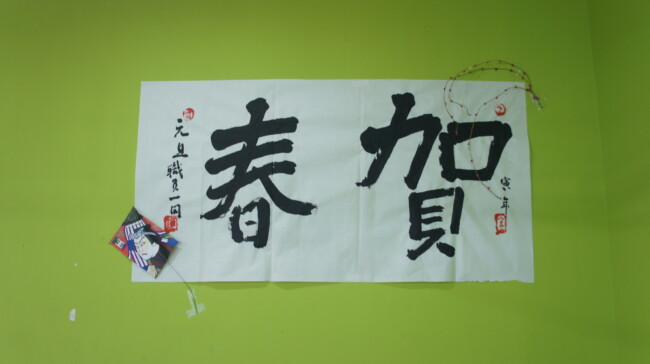 賀春
寅年
元旦職員一同